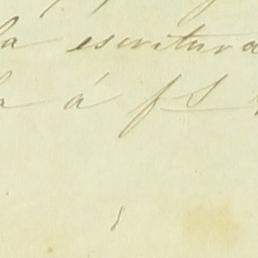 la escritura
la á f S